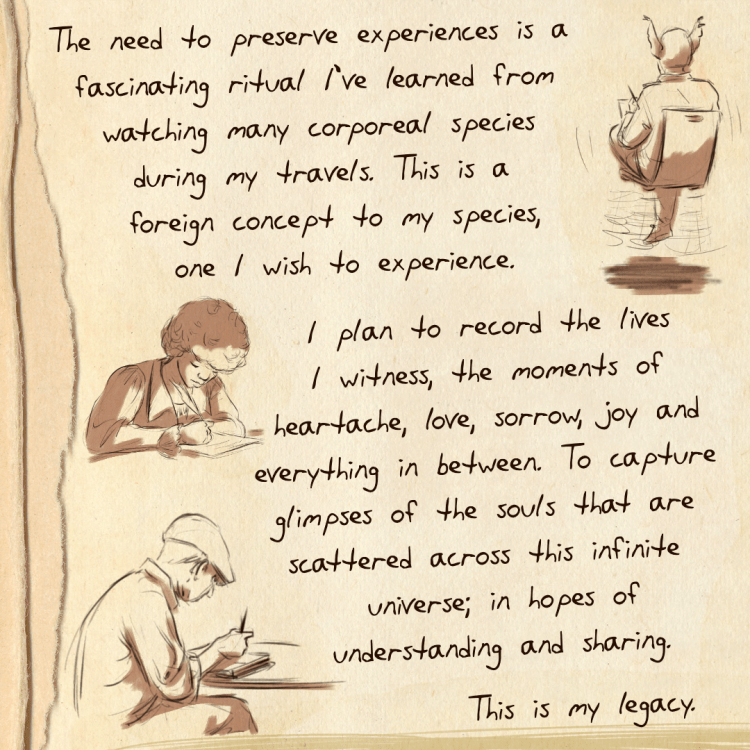 The need to preserve experiences is a
fascinating ritual I've learned from
watching many corporeal species
during my travels. This is a
foreign concept to my species,
one I wish to experience.
I plan to record the lives
I witness, the moments of
heartache, love, sorrow, joy and
everything in between. To capture
glimpses of the souls that are
scattered across this infinite
universe; in hopes of
understanding and sharing.
This is my legacy.